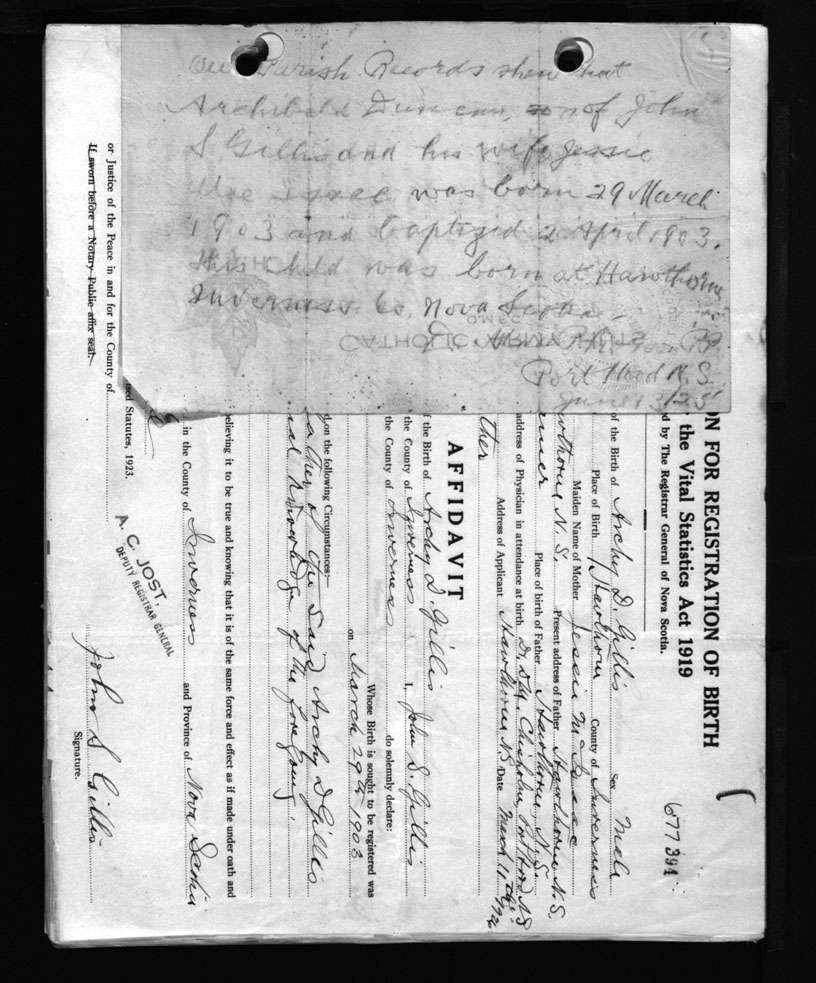 Our Parish Records shew that
Archibald Duncan, son of John
S Gillis and his wife Jessie
Mac Isaac was born 29 March
1903 and baptized 2 April 1903.
This child was born at Hawthorne
Inverness Co. Nova Scotia.
P.P.
Port Hood N.S.
June 13/25
ON FOR REGISTRATION OF BIRTH
the Vital Statistics Act 1919
d by The Registrar General of Nova Scotia.
677394
of the Birth of Archy D. Gillis Sex Male
Place of Birth Hawthorn County of Inverness
Maiden Name of Mother Jessie McIsaac
awthorne N.S. Present address of Father Hawthorne N.S.
armer Place of birth of Father Hawthorne, N.S.
address of Physician in attendance at birth Dr. Chisholm, Port Hood NS
ther Address of Applicant Hawthorne NS Date March 11
AFFIDAVIT
f the Birth of Archy D. Gillis
the County of Inverness I, John S. Gillis
the County of Inverness do solemnly declare:
Whose Birth is sought to be registered was
on March 29th 1903
d on the following Circumstances:—
ather of the said Archy D Gillis
nal knowledge of the foregoing.
elieving it to be true and knowing that it is of the same force and effect as if made under oath and
ned Statutes, 1923.
in the County of Inverness and Province of Nova Scotia
A. C. JOST,
DEPUTY REGISTRAR GENERAL
John S Gillis
Signature.
or Justice of the Peace in and for the County of
If sworn before a Notary Public affix seal.